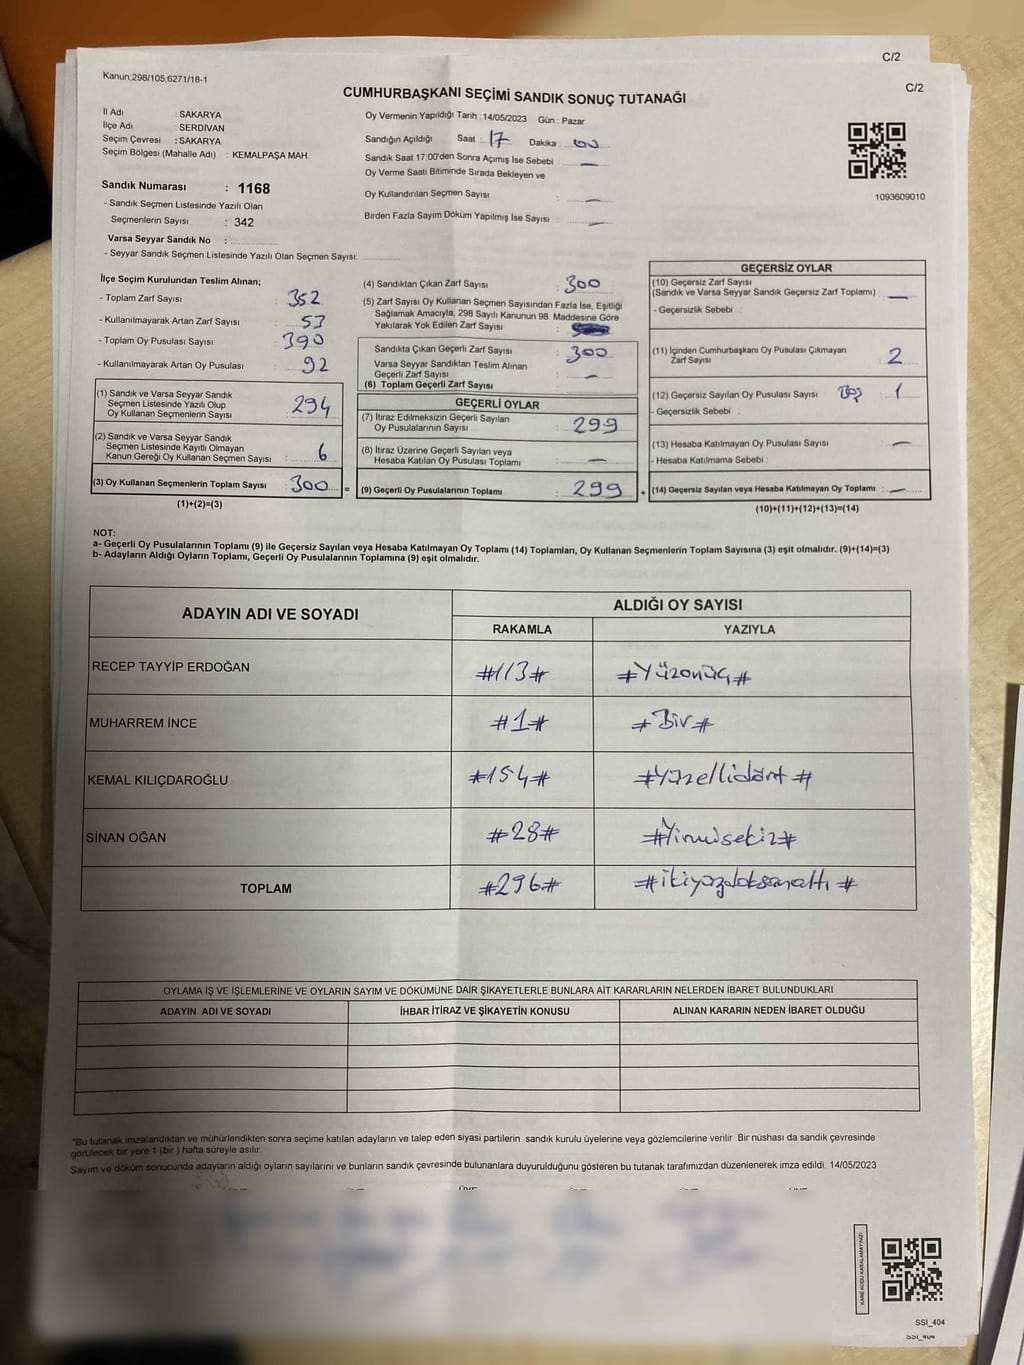 C/2
Kanun:298/105,6271/18-1
C/2
CUMHURBAŞKANI SEÇİMİ SANDIK SONUÇ TUTANAĞI
İl Adı : SAKARYA
İlçe Adı : SERDİVAN
Seçim Çevresi : SAKARYA
Seçim Bölgesi (Mahalle Adı) : KEMALPAŞA MAH.
Sandık Numarası : 1168
- Sandık Seçmen Listesinde Yazılı Olan
Seçmenlerin Sayısı : 342
Varsa Seyyar Sandık No :
- Seyyar Sandık Seçmen Listesinde Yazılı Olan Seçmen Sayısı:
Oy Vermenin Yapıldığı Tarih : 14/05/2023 Gün : Pazar
Sandığın Açıldığı Saat : 17 Dakika : 00
Sandık Saat 17:00'den Sonra Açımış İse Sebebi : —
Oy Verme Saati Bitiminde Sırada Bekleyen ve
Oy Kullandırılan Seçmen Sayısı : —
Birden Fazla Sayım Döküm Yapılmış İse Sayısı : —
1093609010
İlçe Seçim Kurulundan Teslim Alınan;
- Toplam Zarf Sayısı : 352
- Kullanılmayarak Artan Zarf Sayısı : 53
- Toplam Oy Pusulası Sayısı : 390
- Kullanılmayarak Artan Oy Pusulası : 92
(1) Sandık ve Varsa Seyyar Sandık
Seçmen Listesinde Yazılı Olup
Oy Kullanan Seçmenlerin Sayısı : 294
(2) Sandık ve Varsa Seyyar Sandık
Seçmen Listesinde Kayıtlı Olmayan
Kanun Gereği Oy Kullanan Seçmen Sayısı : 6
(3) Oy Kullanan Seçmenlerin Toplam Sayısı : 300 =
(1)+(2)=(3)
(4) Sandıktan Çıkan Zarf Sayısı : 300
(5) Zarf Sayısı Oy Kullanan Seçmen Sayısından Fazla İse, Eşitliği
Sağlamak Amacıyla, 298 Sayılı Kanunun 98. Maddesine Göre
Yakılarak Yok Edilen Zarf Sayısı :
Sandıkta Çıkan Geçerli Zarf Sayısı : 300
Varsa Seyyar Sandıktan Teslim Alınan
Geçerli Zarf Sayısı : —
(6) Toplam Geçerli Zarf Sayısı :
GEÇERLİ OYLAR
(7) İtiraz Edilmeksizin Geçerli Sayılan
Oy Pusulalarının Sayısı : 299
(8) İtiraz Üzerine Geçerli Sayılan veya
Hesaba Katılan Oy Pusulası Toplamı : —
(9) Geçerli Oy Pusulalarının Toplamı : 299 +
GEÇERSİZ OYLAR
(10) Geçersiz Zarf Sayısı
(Sandık ve Varsa Seyyar Sandık Geçersiz Zarf Toplamı) : —
- Geçersizlik Sebebi :
(11) İçinden Cumhurbaşkanı Oy Pusulası Çıkmayan
Zarf Sayısı : 2
(12) Geçersiz Sayılan Oy Pusulası Sayısı Boş : 1
- Geçersizlik Sebebi :
(13) Hesaba Katılmayan Oy Pusulası Sayısı : —
- Hesaba Katılmama Sebebi :
(14) Geçersiz Sayılan veya Hesaba Katılmayan Oy Toplamı : —
(10)+(11)+(12)+(13)=(14)
NOT:
a- Geçerli Oy Pusulalarının Toplamı (9) ile Geçersiz Sayılan veya Hesaba Katılmayan Oy Toplamı (14) Toplamları, Oy Kullanan Seçmenlerin Toplam Sayısına (3) eşit olmalıdır. (9)+(14)=(3)
b- Adayların Aldığı Oyların Toplamı, Geçerli Oy Pusulalarının Toplamına (9) eşit olmalıdır.
ADAYIN ADI VE SOYADI ALDIĞI OY SAYISI
RAKAMLA YAZIYLA
RECEP TAYYİP ERDOĞAN #113# #Yüzonüç#
MUHARREM İNCE #1# #Bir#
KEMAL KILIÇDAROĞLU #154# #Yüzellidört#
SİNAN OĞAN #28# #Yirmisekiz#
TOPLAM #296# #ikiyüzdoksanaltı#
OYLAMA İŞ VE İŞLEMLERİNE VE OYLARIN SAYIM VE DÖKÜMÜNE DAİR ŞİKAYETLERLE BUNLARA AİT KARARLARIN NELERDEN İBARET BULUNDUKLARI
ADAYIN ADI VE SOYADI İHBAR İTİRAZ VE ŞİKAYETİN KONUSU ALINAN KARARIN NEDEN İBARET OLDUĞU
*Bu tutanak imzalandıktan ve mühürlendikten sonra seçime katılan adayların ve talep eden siyasi partilerin sandık kurulu üyelerine veya gözlemcilerine verilir. Bir nüshası da sandık çevresinde
görülecek bir yere 1 (bir) hafta süreyle asılır.
Sayım ve döküm sonucunda adayların aldığı oyların sayılarını ve bunların sandık çevresinde bulunanlara duyurulduğunu gösteren bu tutanak tarafımızdan düzenlenerek imza edildi. 14/05/2023
KARE KODU KARALAMAYINIZ!
SSI_404
SSI_404